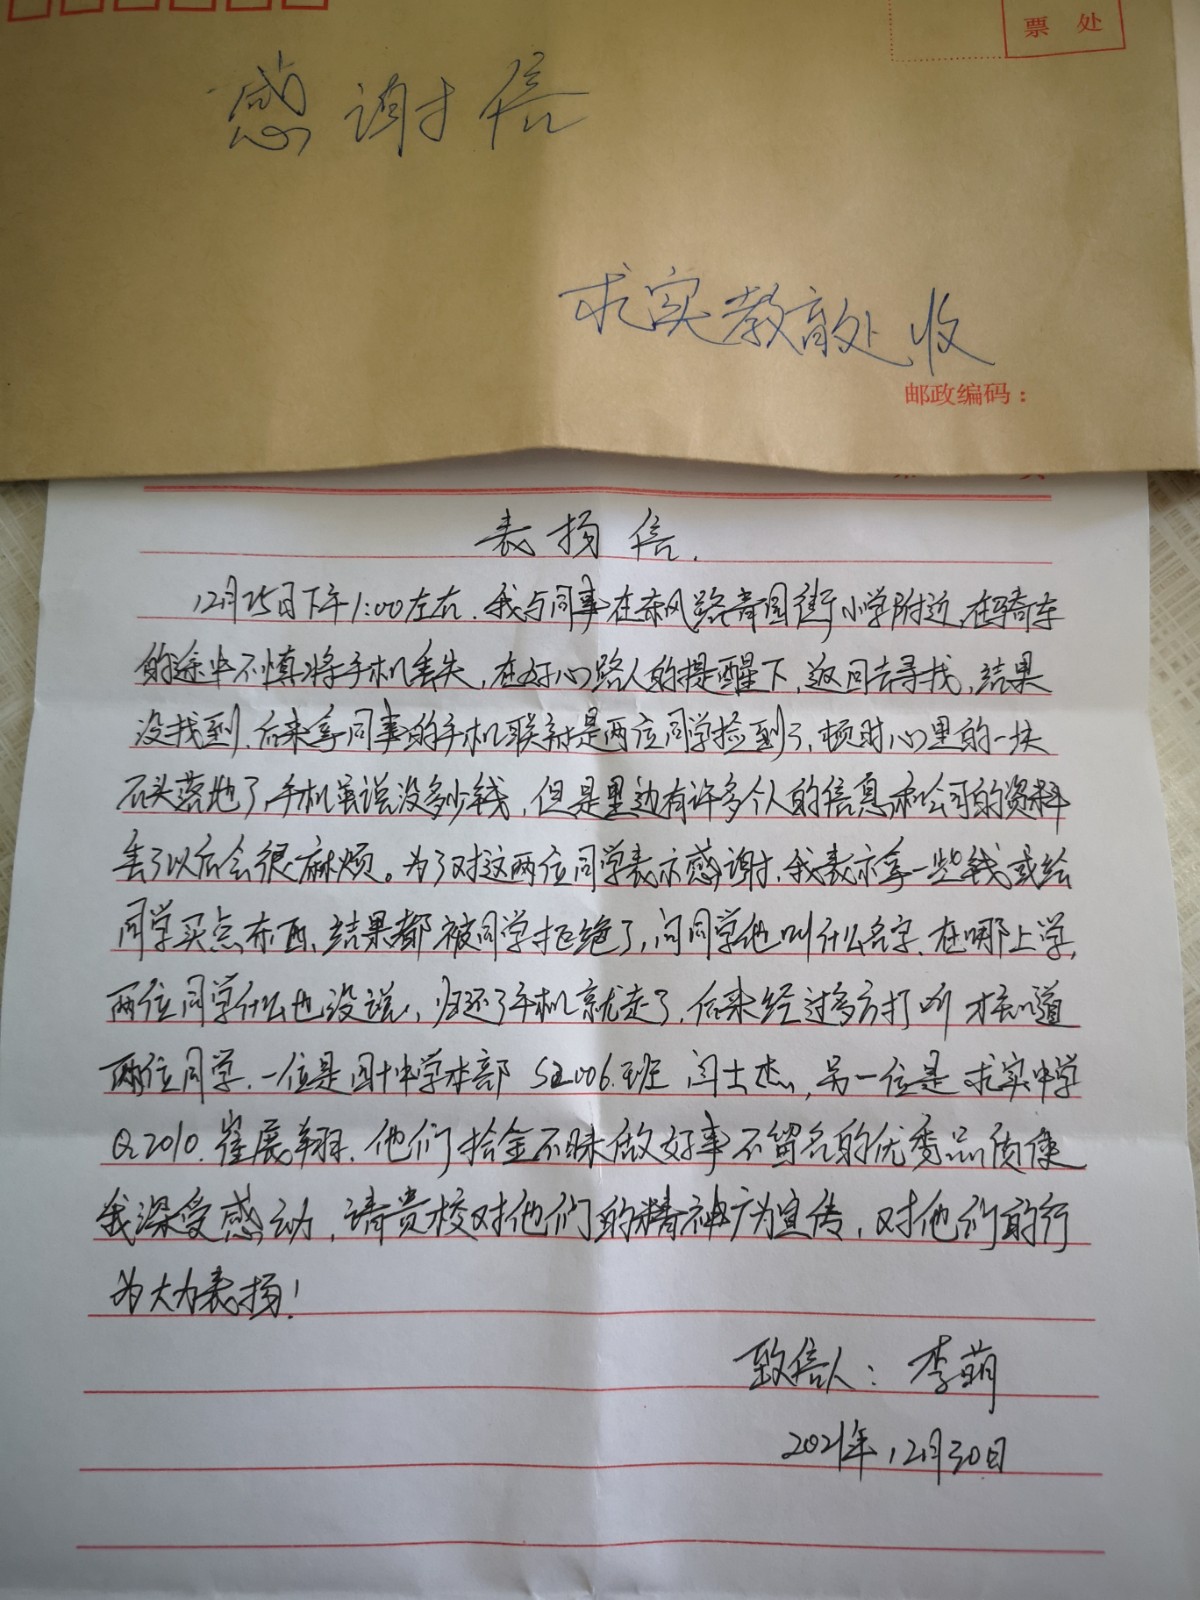 票 处
感谢信
求实教育处 收
邮政编码：
表扬信.
12月25日下午1:00左右.我与同事在东风路青园街小学附近,在骑车
的途中不慎将手机丢失,在好心路人的提醒下,返回去寻找,结果
没找到.后来拿同事的手机联系是两位同学捡到了,顿时心里的一块
石头落地了,手机虽说没多少钱,但是里边有许多个人的信息和公司的资料
丢了以后会很麻烦。为了对这两位同学表示感谢.我表示拿一些钱或给
同学买点东西、结果都被同学拒绝了,问同学他叫什么名字.在哪上学,
两位同学什么也没说,归还了手机就走了.后来经过多方打听才知道
两位同学.一位是四十中学本部 S2006.班 闫士杰,另一位是求实中学
Q2010.崔展翔.他们拾金不昧做好事不留名的优秀品质使
我深受感动,请贵校对他们的精神广为宣传,对他们的行
为大力表扬!
致信人:李萌
2021年12月30日